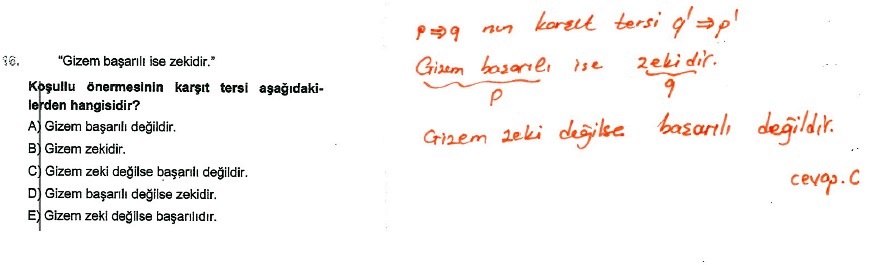 16. "Gizem başarılı ise zekidir."
Koşullu önermesinin karşıt tersi aşağıdaki-
lerden hangisidir?
A) Gizem başarılı değildir.
B) Gizem zekidir.
C) Gizem zeki değilse başarılı değildir.
D) Gizem başarılı değilse zekidir.
E) Gizem zeki değilse başarılıdır.
p⇒q nun karşıt tersi q'⇒p'
Gizem başarılı ise zekidir.
p q
Gizem zeki değilse başarılı değildir.
cevap. C